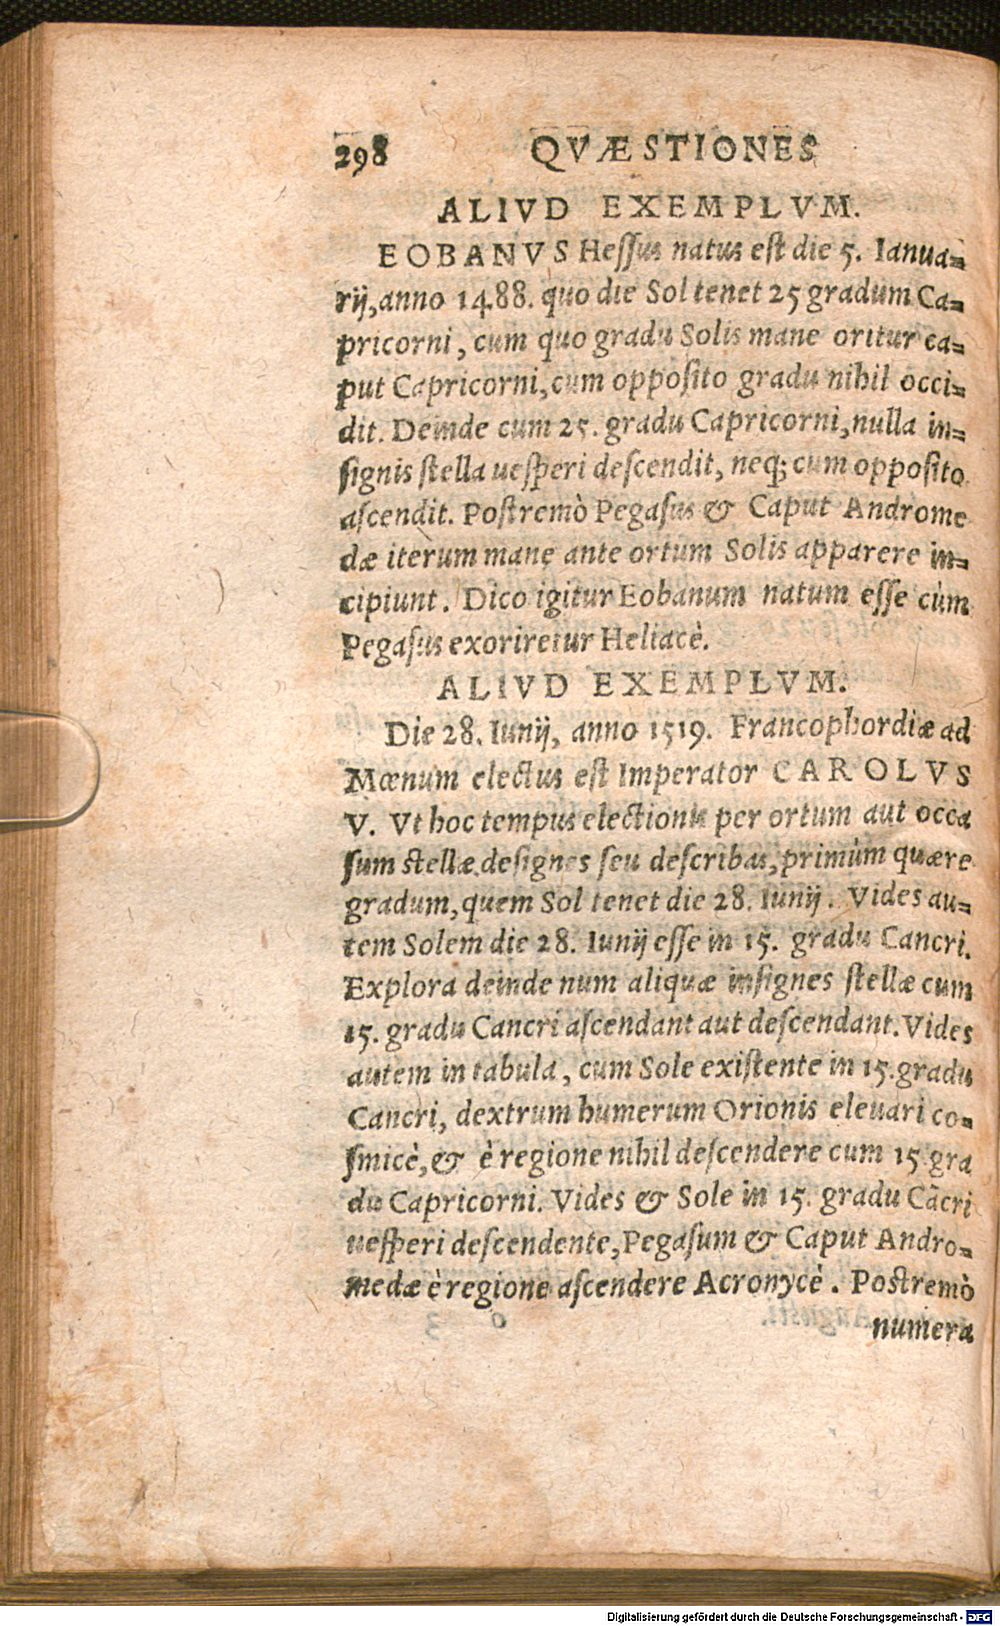 298 QVÆSTIONES
ALIVD EXEMPLVM.
EOBANVS Heſſus natus eſt die 5. Ianua=
rij, anno 1488. quo die Sol tenet 25 gradum Ca=
pricorni, cum quo gradu Solis mane oritur ca=
put Capricorni, cum oppoſito gradu nihil occi=
dit. Deinde cum 25. gradu Capricorni, nulla in=
ſignis ſtella ueſperi deſcendit, neq; cum oppoſito
aſcendit. Poſtremò Pegaſus & Caput Androme
dæ iterum mane ante ortum Solis apparere in=
cipiunt. Dico igitur Eobanum natum eſſe cùm
Pegaſus exoriretur Heliacè.
ALIVD EXEMPLVM.
Die 28. Iunij, anno 1519. Francophordiæ ad
Mœnum electus eſt Imperator CAROLVS
V. Vt hoc tempus electionis per ortum aut occa
ſum ſtellæ deſignes ſeu deſcribas, primùm quære
gradum, quem Sol tenet die 28. Iunij. Vides au=
tem Solem die 28. Iunij eſſe in 15. gradu Cancri.
Explora deinde num aliquæ inſignes ſtellæ cum
15. gradu Cancri aſcendant aut deſcendant. Vides
autem in tabula, cum Sole exiſtente in 15. gradu
Cancri, dextrum humerum Orionis eleuari co=
ſmicè, & è regione nihil deſcendere cum 15 gra
du Capricorni. Vides & Sole in 15. gradu Cãcri
ueſperi deſcendente, Pegaſum & Caput Andro=
medæ è regione aſcendere Acronycè. Poſtremò
numera
Digitalisierung gefördert durch die Deutsche Forschungsgemeinschaft - DFG